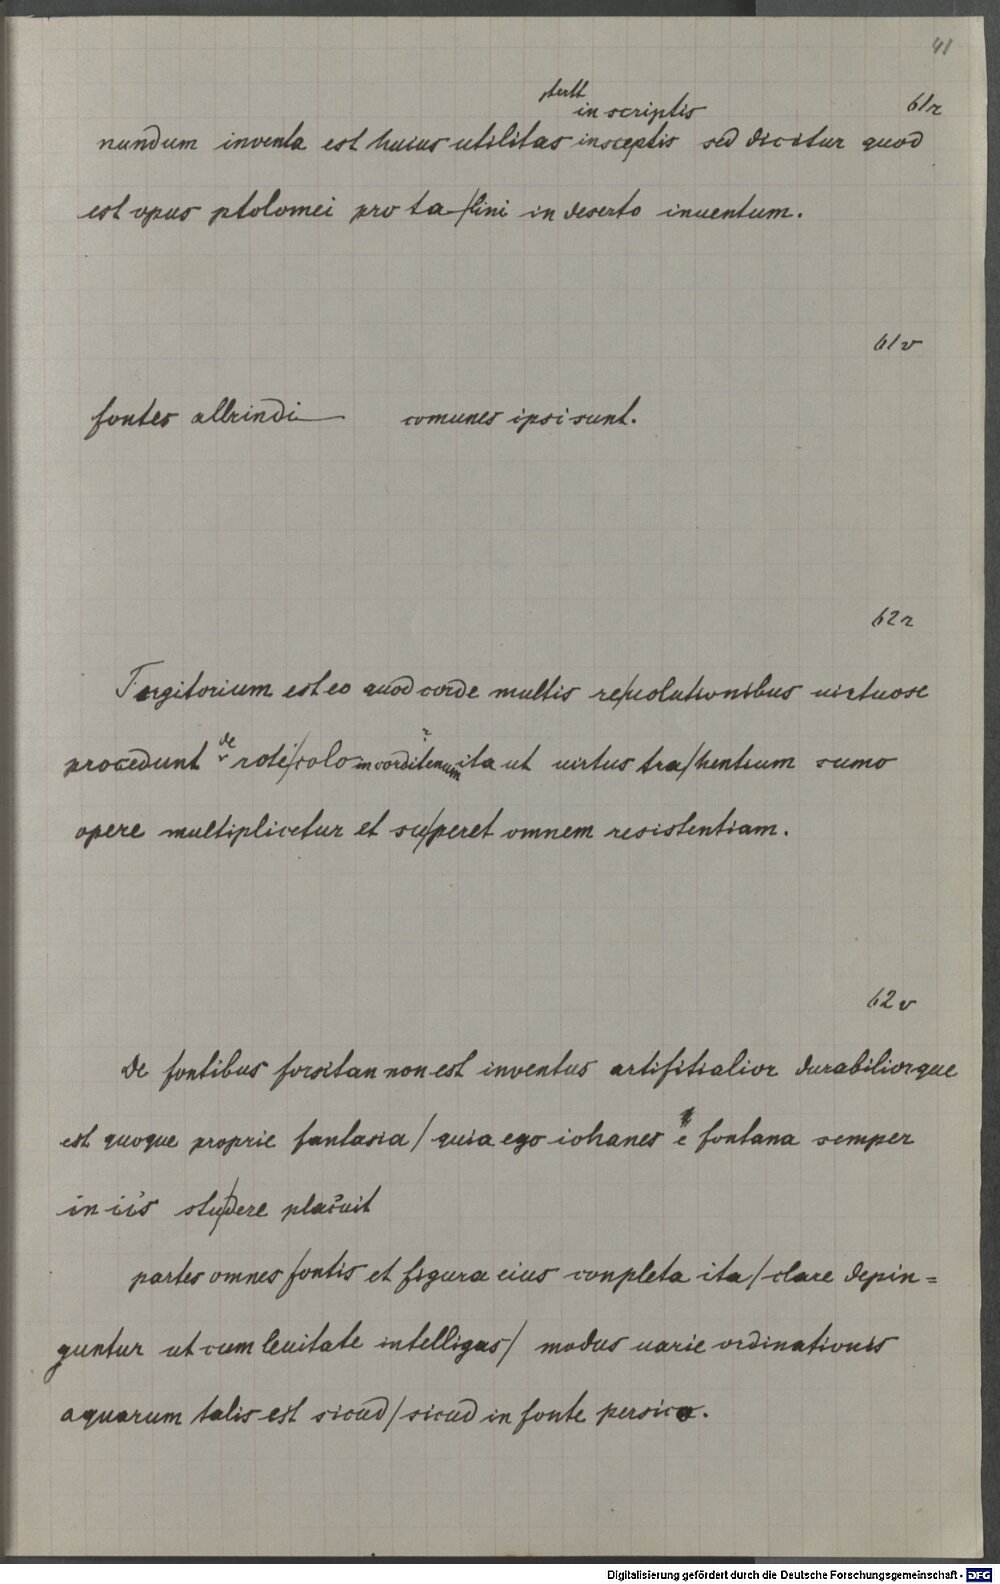 41
61r
in scriptis
nundum inventa est huius utilitas insceptis sed dicitur quod
est opus ptolomei pro ta/lini in deserto inuentum.
61v
fontes albrindi— comunes ipsi sunt.
62r
Torgitorium est eo quod corde multis re/uolutionibus uirtuose
de ?
procedunt rote/colo incorditenum ita ut uirtus tra/hentium sumo
opere multiplicetur et su/peret omnem resistentiam.
62v
De fontibus forsitan non est inventus artifitialior durabiliorque
est quoque proprie fantasia / quia ego iohanes e fontana semper
in iis stu/dere placuit
partes omnes fontis et figura eius conpleta ita / clare depin=
guntur ut cum leuitate intelligas / modus uarie ordinationis
aquarum talis est sicud / sicud in fonte persico.
Digitalisierung gefördert durch die Deutsche Forschungsgemeinschaft - DFG